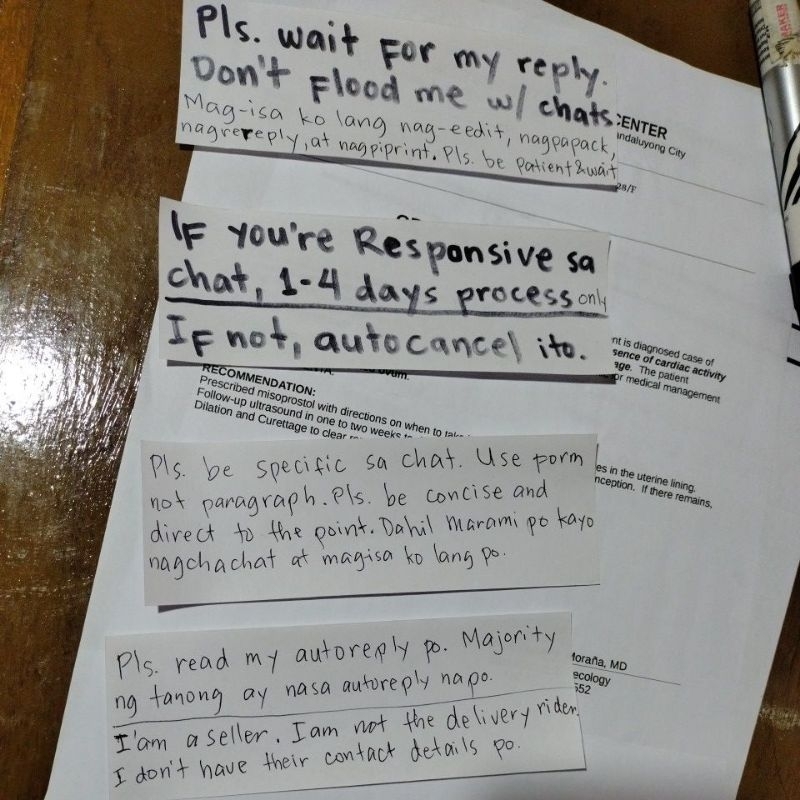 Pls. wait for my reply.
Don't Flood me w/ chats.
Mag-isa ko lang nag-eedit, nagpapack,
nagrereply, at nagpiprint. Pls. be patient & wait
CENTER
andaluyong City
28/F
IF you're Responsive sa
chat, 1-4 days process only
IF not, autocancel ito.
nt is diagnosed case of
sence of cardiac activity
age. The patient
or medical management
RECOMMENDATION:
Prescribed misoprostol with directions on when to take
Follow-up ultrasound in one to two weeks to
Dilation and Curettage to clear
es in the uterine lining.
nception. If there remains,
Pls. be specific sa chat. Use porm
not paragraph. Pls. be concise and
direct to the point. Dahil marami po kayo
nagchachat at magisa ko lang po.
Pls. read my autoreply po. Majority
ng tanong ay nasa autoreply na po.
I'am a seller. I am not the delivery rider.
I don't have their contact details po.
Moraña, MD
ecology
552